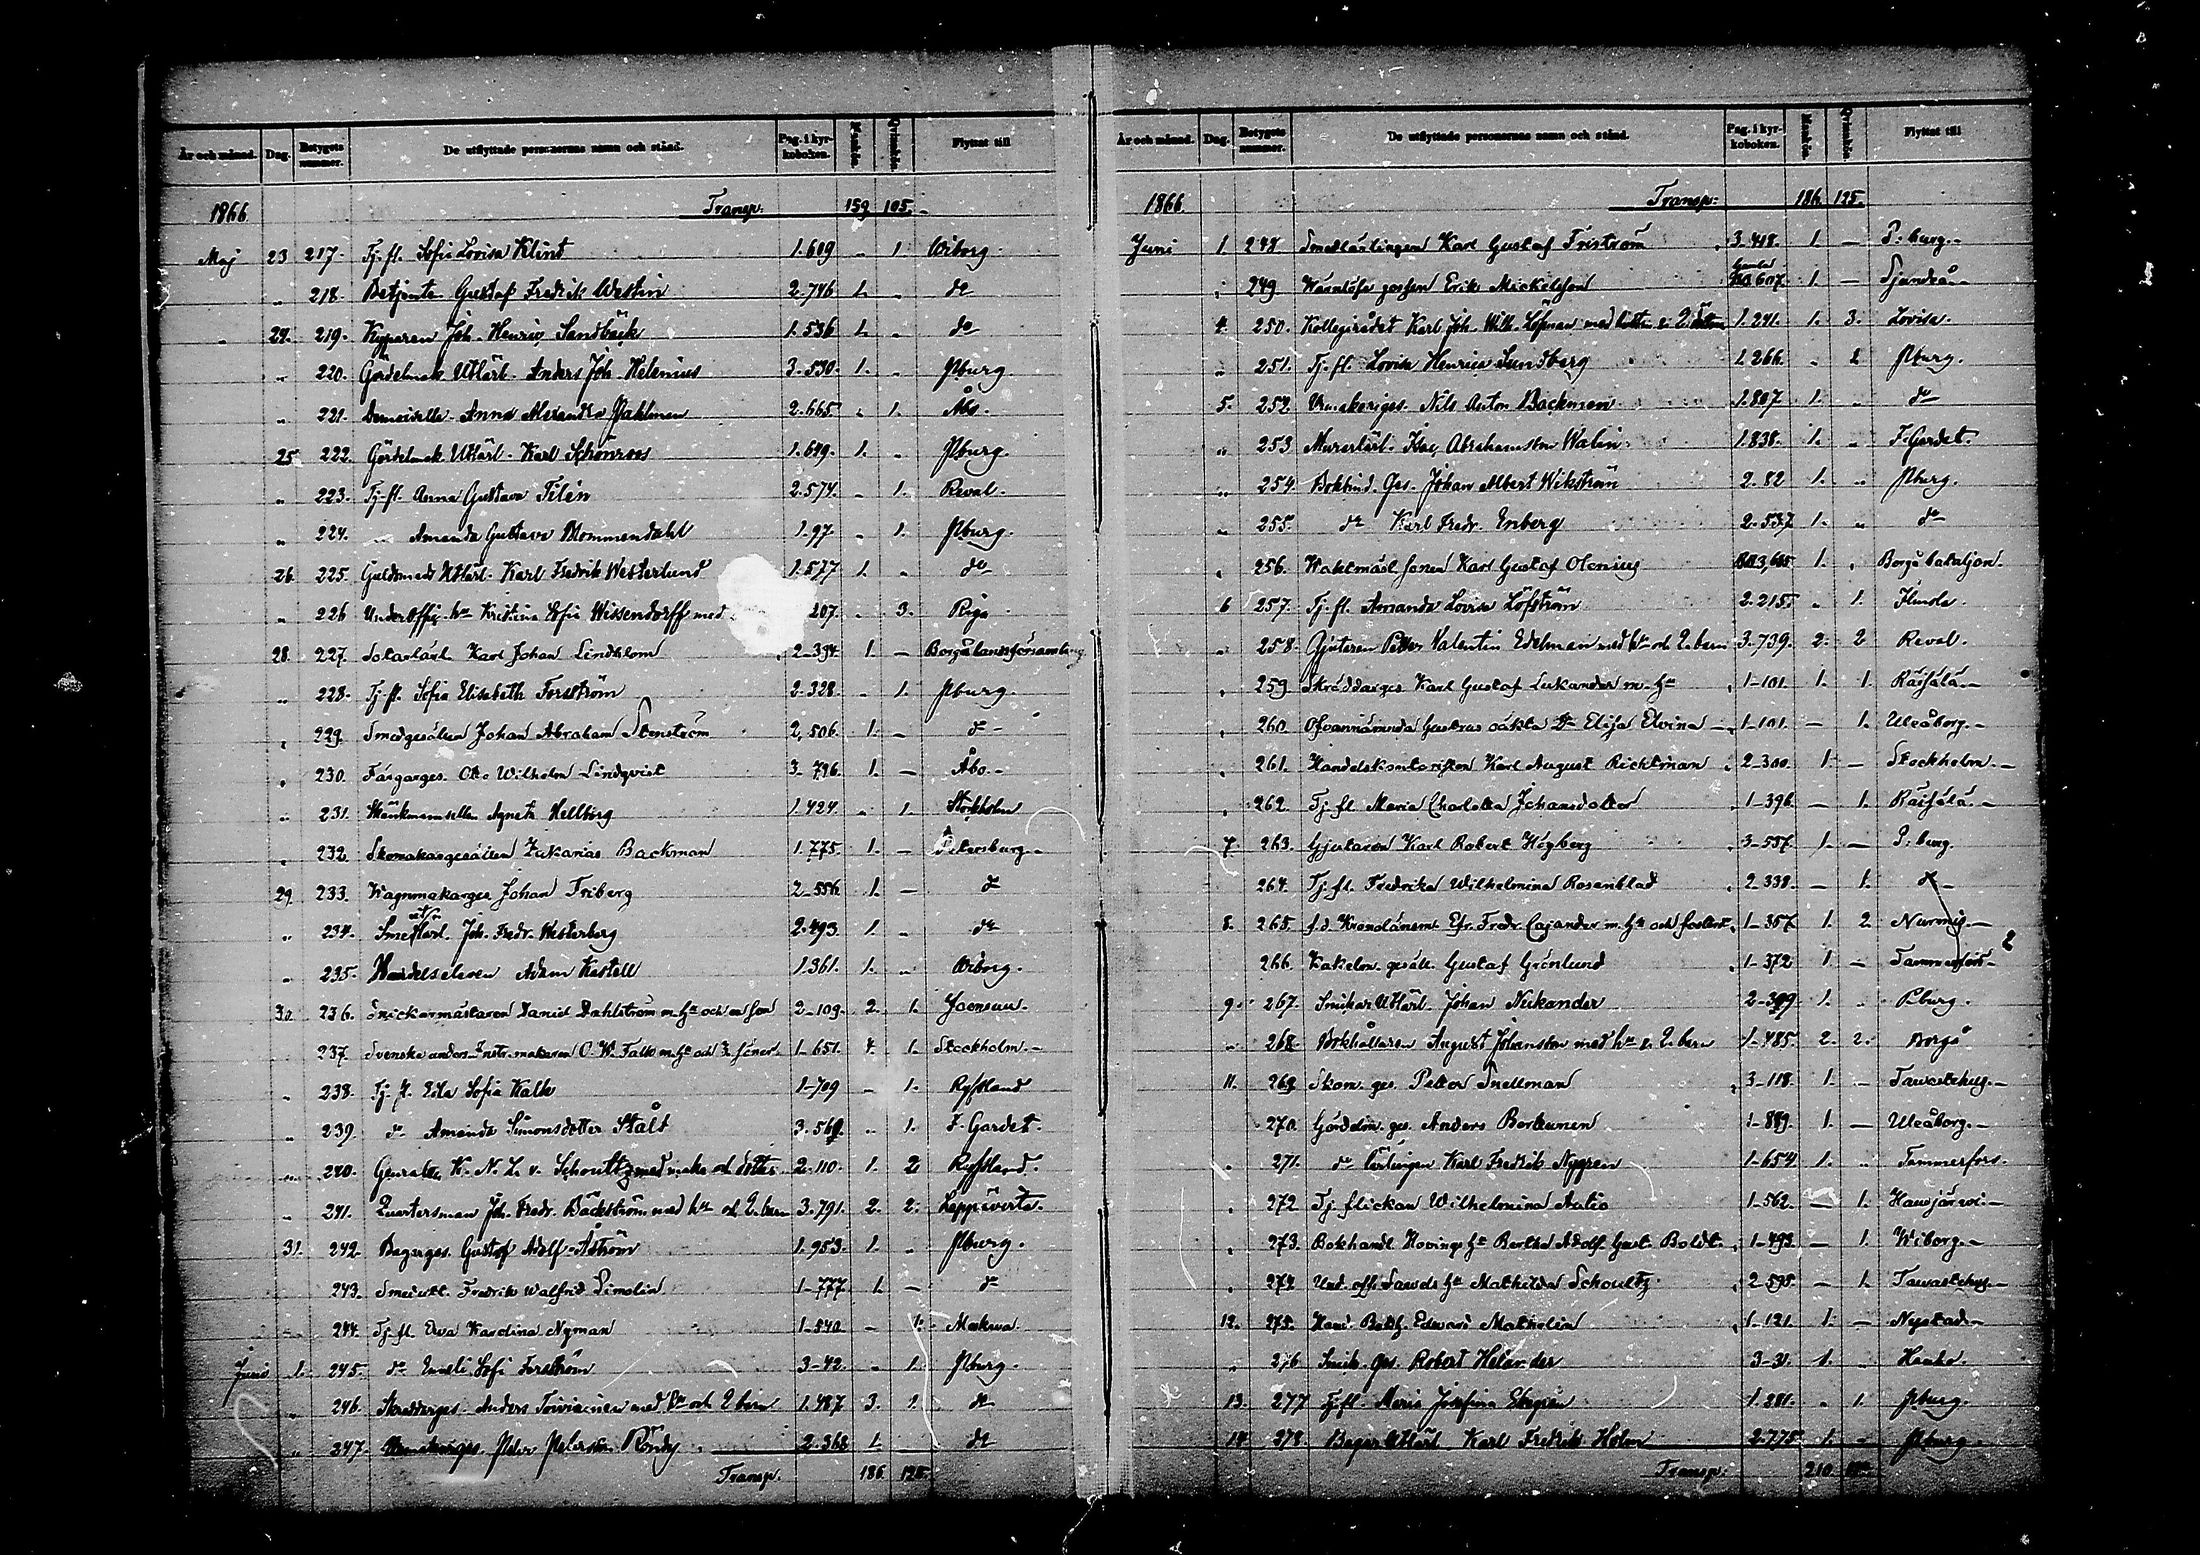 År och månad. Dag. Betygets nummer. De utflyttade personernas namn och stånd. Pag. i kyrkoboken. Mankön. Qvinkön. Flyttat till
1866 Transp. 159 105.
Maj 23 217. Tj. fl. Sofia Lovisa Klint 1.609 „ 1. Wiborg
„ 218. Betjente Gustaf Fredrik Westin 2.746 1. „ do
24. 219. Kyparen Joh. Henric Sandbäck 1.536 1. „ do
„ 220. Gördelmak. Utlärl. Anders Joh. Helenius 3.530 1. „ Pburg.
„ 221. Demoiselle Anna Alexandra Pahlman 2.665 „ 1. Åbo.
25. 222. Gördelmak. Utlärl. Karl Schönroos 1.649. 1. „ Pburg.
„ 223. Tj. fl. Anna Gustava Filén 2.574. „ 1. Reval.
„ 224. Amanda Gustava Blommendahl 1.97. „ 1. Pburg.
26. 225. Guldsmeds Utlärl. Karl Fredrik Westerlund 1.577 1. „ do
„ 226 Underoffic. hu Kristina Sofia Wissendorff med 207. „ 3. Riga
28. 227. Karl Johan Lindblom 2-394. 1. — Borgå landsförsamling
„ 228. Tj. fl. Sofia Elisabeth Forsström 2.328. „ 1. Pburg.
„ 229. Smedgesällen Johan Abraham Stenström 2,506. 1. — d-
„ 230. Färgarges. Otto Wilhelm Lindqvist 3-796. 1. — Åbo.-
„ 231. Agneta Hellberg 1.424. „ 1. Stockholm
„ 232. Skomakaregesällen Zakarias Backman 1.775. 1. — Petersburg.-
29. 233. Wagnmakarges Johan Friberg 2-556. 1. — d
„ 234. Joh. Fredr. Westerberg 2.493. 1. „ do
„ 235. Handelseleven Adam Kastell 1.361. 1. „ Wiborg.
30. 236. Snickarmästaren Daniel Dahlström m. Hu och en son 2-109. 2. 1. Joensuu.
237. Svenske unders. Instr. makaren C. W. Falk m. Hu och 3 söner 1-651. 4. 1. Stockholm.-
„ 238. Tj. fl. Eda Sofia Kalk 1-709 — 1. Ryssland
„ 239. do Amanda Simonsdotter Stålt 3.569. „ 1. F. Gardet.
„ 240. Generalen K. N. L. v. Schoultz med maka och dotter. 2.110. 1. 2 Ryssland.
„ 241. Quartersman Joh. Fredr. Bäckström med hu och 2. barn 3.791. 2. 2. Leppävirta.
31. 242. Bagarges. Gustaf Adolf Åström 1.953. 1. „ Pburg.
243. Fredrik Walfrid Limolin 1-777. 1. — d
244. Tj. fl. Eva Karolina Nyman 1-540 — 1. Moskwa
Juni 1. 245. do Emeli Sofi Forsström 3-42. „ 1. Pburg.
„ 246. Skreddarges. Anders Toiviainen med hu och 2 barn 1.487 3. 1. do
„ 247. Peter Petersson Röndy 2.368 1. do
Transp. 186. 125.
År och månad. Dag. Betygets nummer. De utflyttade personernas namn och stånd. Pag. i kyrkoboken. Mankön. Qvinkön. Flyttat till
1866. Transp. 186. 125.
Juni 1. 248. Smedlärlingen Karl Gustaf Friström 3.418. 1. — P:burg.-
249 Erik Mickelsson 607. 1. — Sjundeå.-
4. 250. Kollegirådet Karl Joh. Wilh. Löfman med hustru o. 2 döttrar 1.241. 1. 3. Lovisa.
„ 251. Tj. fl. Lovisa Henrica Sundberg 1.266. „ 1 Pburg.
5. 252 Urmakariges. Nils Anton Backman 1.807 1. „ do
„ 253 Murarlärl. Isac Abrahamsson Walin 1.838. 1. „ F. Gardet.
„ 254 Bokbind. Ges. Johan Albert Wikström 2.82 1. „ Pburg.
„ 255. do Karl Fredr. Enberg 2.537 1. „ do
„ 256. Waktmäst. sonen Karl Gustaf Olenius 1. „ Borgå bataljon.
6 257. Tj. fl. Amanda Lovisa Löfström 2.215. „ 1. ILmola.
„ 258. Gjutaren Petter Valentin Edelman med hu och 2. barn 3.739. 2. 2 Reval.
„ 259 Skräddarges Karl Gustaf Lukander m. Hu 1-101. 1. 1. Räisälä.-
260. Ofvannämnda Hustrus oäkta Elisa Elvina 1-101. — 1. Uleåborg.-
„ 261. Handelskontoristen Karl August Richtman 2-300. 1. — Stockholm.-
„ 262. Tj. fl. Maria Charlotta Johansdotter 1-396. — 1. Räisälä.-
7. 263. Gjutaren Karl Robert Högberg 3-557. 1. — P:burg.
264. Tj. fl. Fredrika Wilhelmina Rosenblad 2-338. — 1. d-
8. 265. f.d. Kronolänsm. Efr. Fredr. Cajander m. Hu och fosterd. 1-357 1. 2. Nurmis.-
266. Kakelm. gesäll. Gustaf Grönlund 1-372 1. — Tammerfors.- 2
9. 267. Snikar Utlärl. Johan Neikander 2-399 1. „ P.burg.
„ 268. Bokhållaren August Johansson med hu o. 2. barn 1-485. 2. 2. Borgå
11. 269. Skom. ges. Petter Snellman 3-118. 1. — Tawastehus.-
270. Gördelm. ges. Anders Borkunen 1-889. 1. — Uleåborg.-
„ 271. do lärlingen Karl Fredrik Nygren 1-654 1. „ Tammerfors.
„ 272. Tj. flickan Wilhelmina Autio 1-562. — 1. Hausjärvi.-
„ 273. Bokhandl. Hovings Hu Bertha Adolf. Gust. Boldt. 1-493 — 1. Wiborg.-
„ 274. Und. off. Hu Mathilda Schoultz 2-595. — 1. Tawastehus.-
12. 275. Hand. Bokh. Edward Matholin 1-121. 1. — Nystad.-
„ 276 Snik. Ges. Robert Helander 3-31. 1. „ Hauho.
13. 277 Tj. fl. Maria Josefina Ekegrén 1.281. „ 1. Pburg.
14. 278. Bagar Utlärl. Karl Fredrik Holm 2-775 1. — Pburg.
Transp: 210